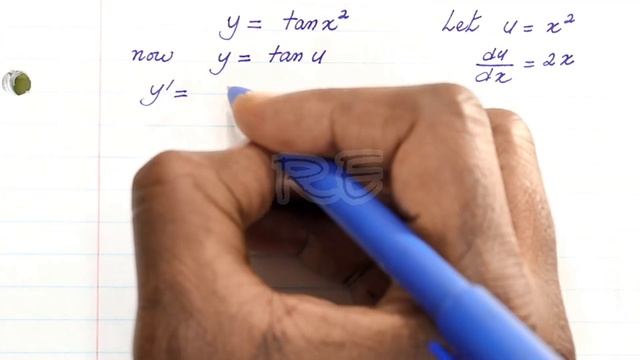 y = tan x² Let u = x²
now y = tan u du/dx = 2x
y' =
RE